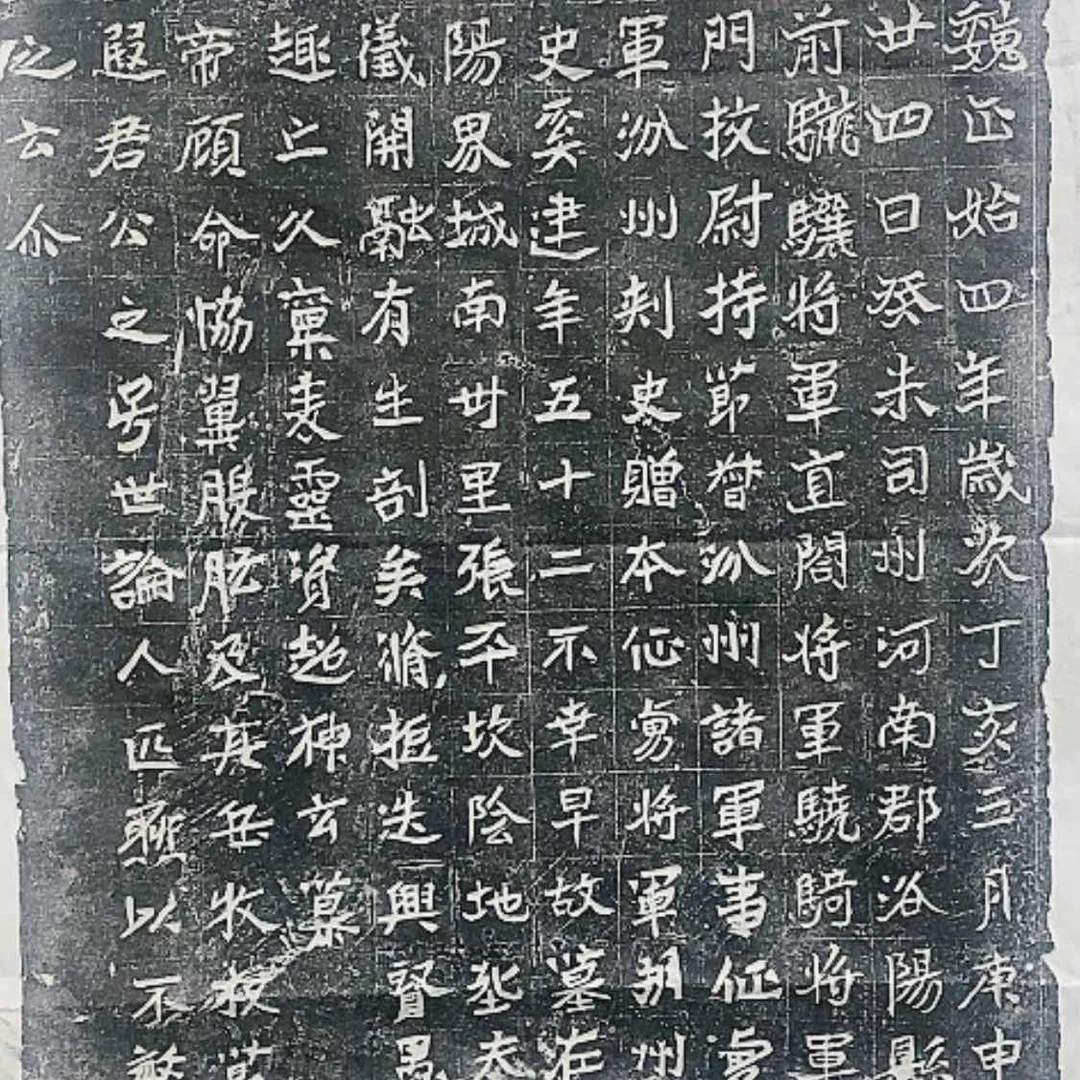 魏正始四年歲次丁亥三月庚申
廿四日癸未司州河南郡洛陽縣
前驍驤將軍直閤將軍驍騎將軍
門校尉持節督汾州諸軍事征虜
軍汾州刺史贈本征虜將軍朔州
史奚建年五十二不幸早故墓在
陽界城南卅里張平坎陰地㘸大
儀開融有生剖矣脩短迭興賢愚
趣亡久稟表靈資超神玄
帝顧命協翼股肱及其岳牧
遐君公之号世論人匹燕以不
之云尒